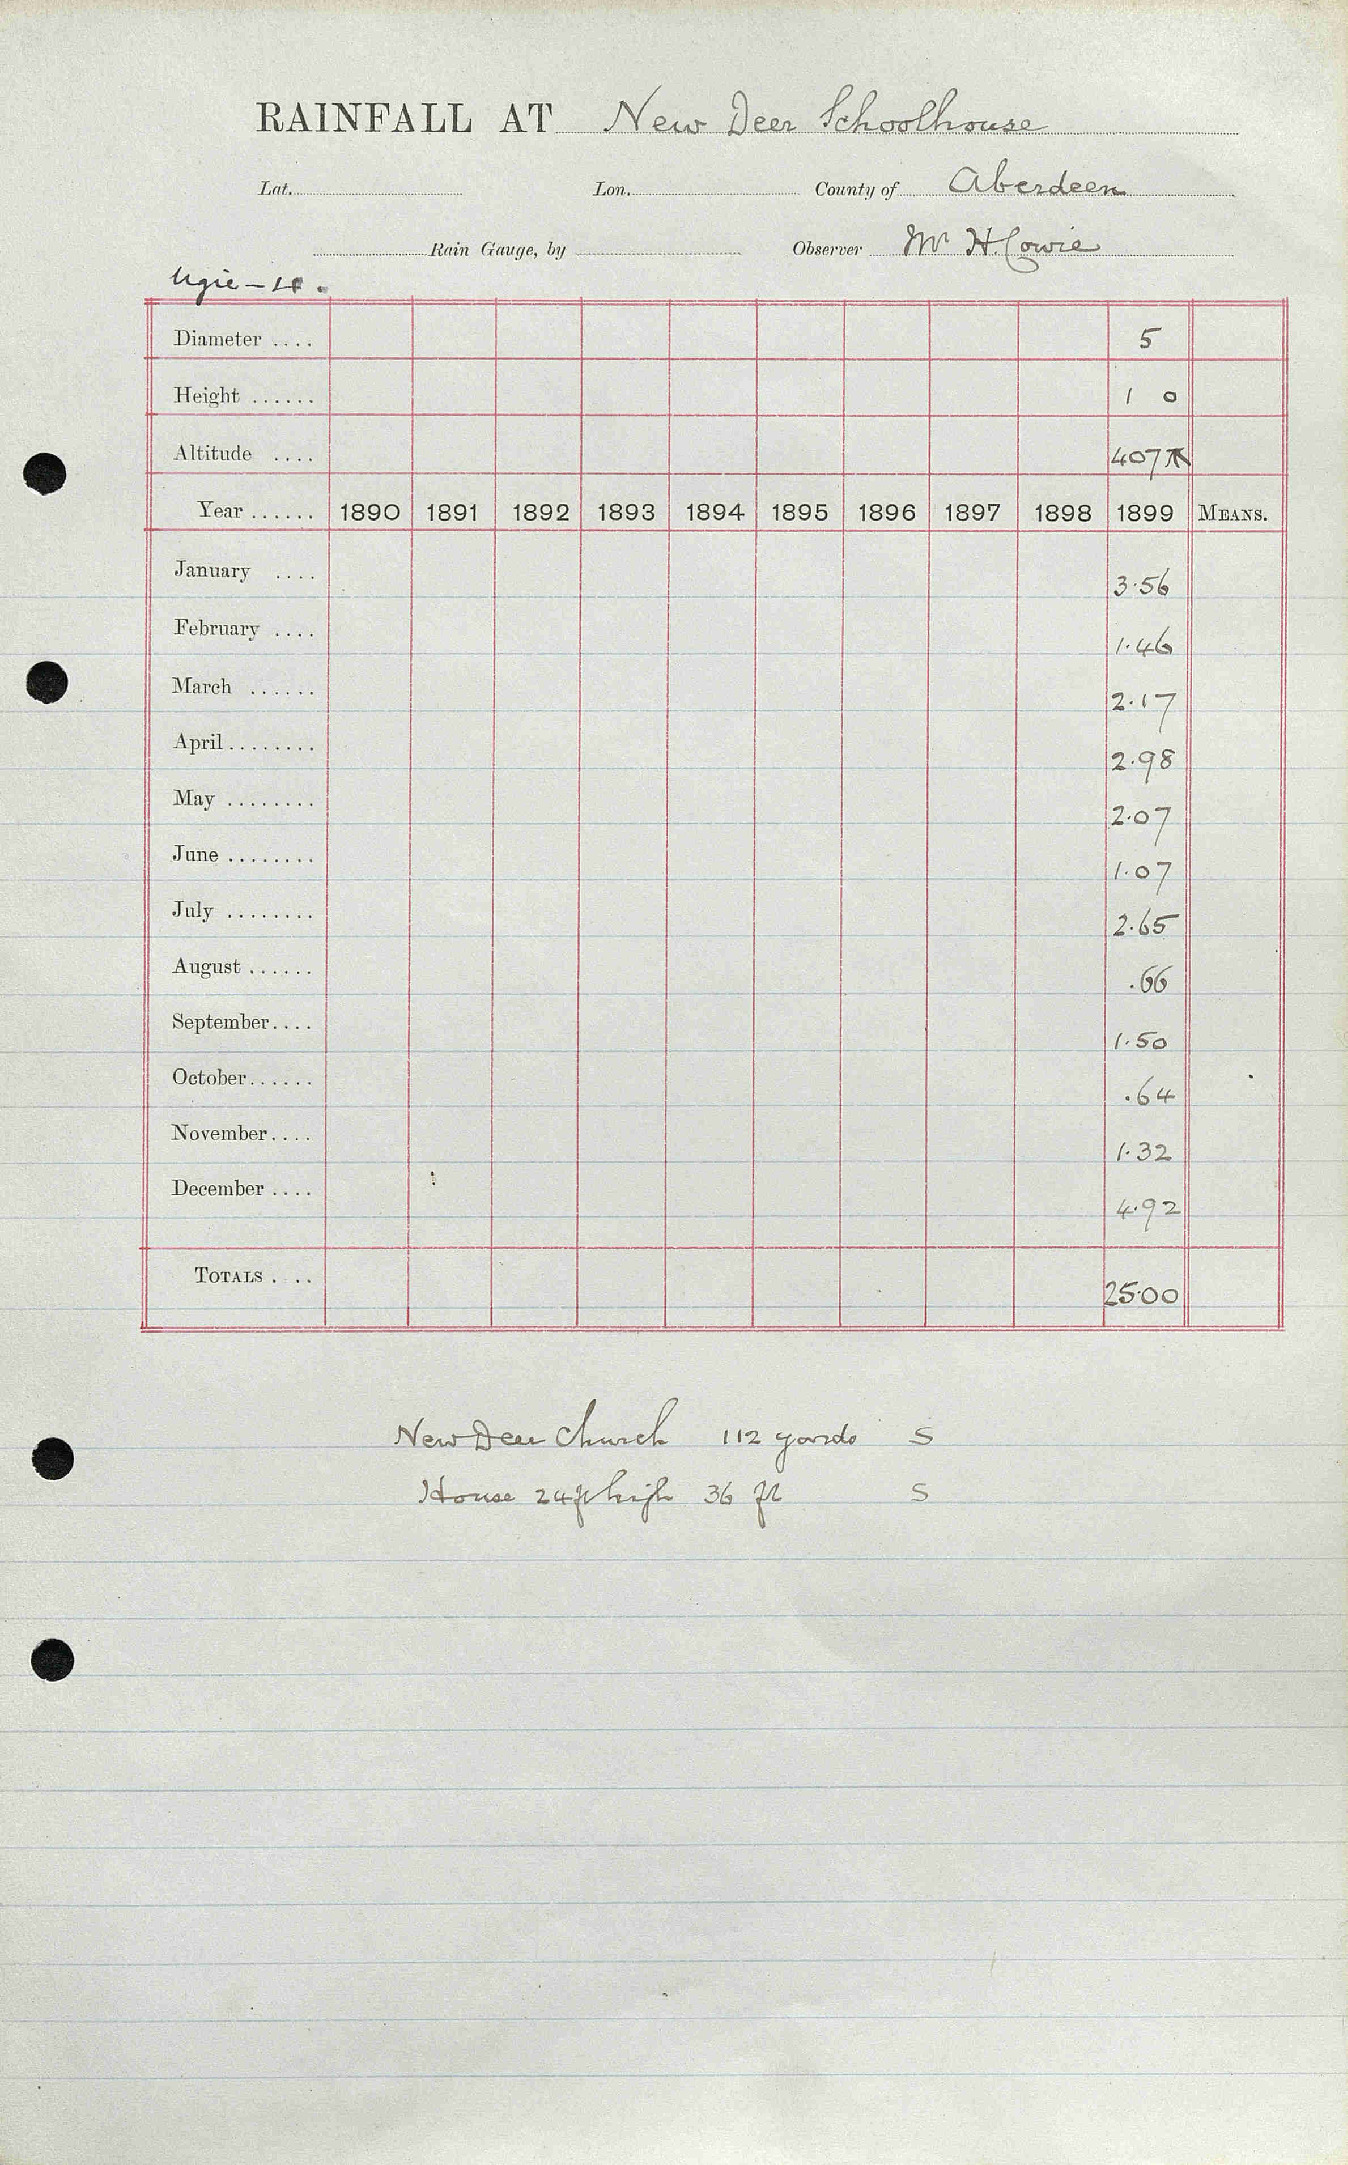 RAINFALL AT New Deer Schoolhouse
Lat. Lon. County of Aberdeen
Rain Gauge, by Observer Mr H. Cowie
Ugie –
Diameter .... 5
Height ...... 1 0
Altitude .... 407
Year ...... 1890 1891 1892 1893 1894 1895 1896 1897 1898 1899 MEANS.
January .... 3.56
February .... 1.46
March ...... 2.17
April ........ 2.98
May ........ 2.07
June ........ 1.07
July ........ 2.65
August ...... .66
September .... 1.50
October ...... .64
November .... 1.32
December .... 4.92
TOTALS . .. 25.00
New Deer Church 112 yards S
House 24 ft high 36 ft S